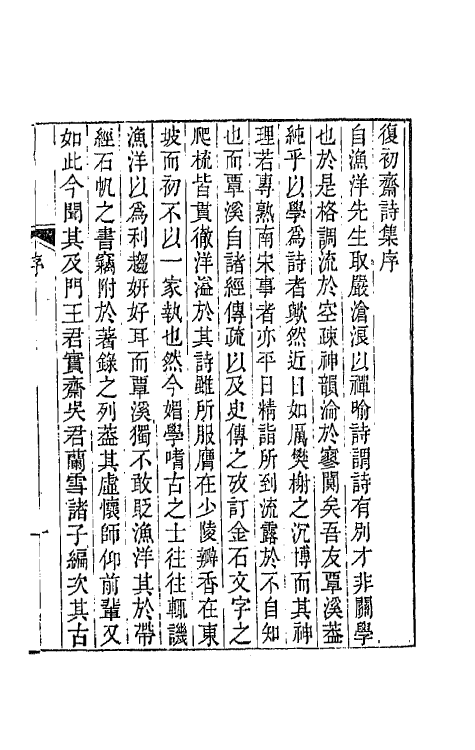 復初齋詩集序
自漁洋先生取嚴滄浪以禪喻詩謂詩有別才非關學
也於是格調流於空疎神韻淪於寥闃矣吾友覃溪葢
純乎以學爲詩者歟然近日如厲樊榭之沉博而其神
理若專熟南宋事者亦平日精詣所到流露於不自知
也而覃溪自諸經傳疏以及史傳之攷訂金石文字之
爬梳皆貫徹洋溢於其詩雖所服膺在少陵瓣香在東
坡而初不以一家執也然今媚學嗜古之士往往輒譏
漁洋以爲利趨妍好耳而覃溪獨不敢貶漁洋其於帶
經石帆之書竊附於著錄之列葢其虛懷師仰前輩又
如此今聞其及門王君實齋吳君蘭雪諸子編次其古
序
一